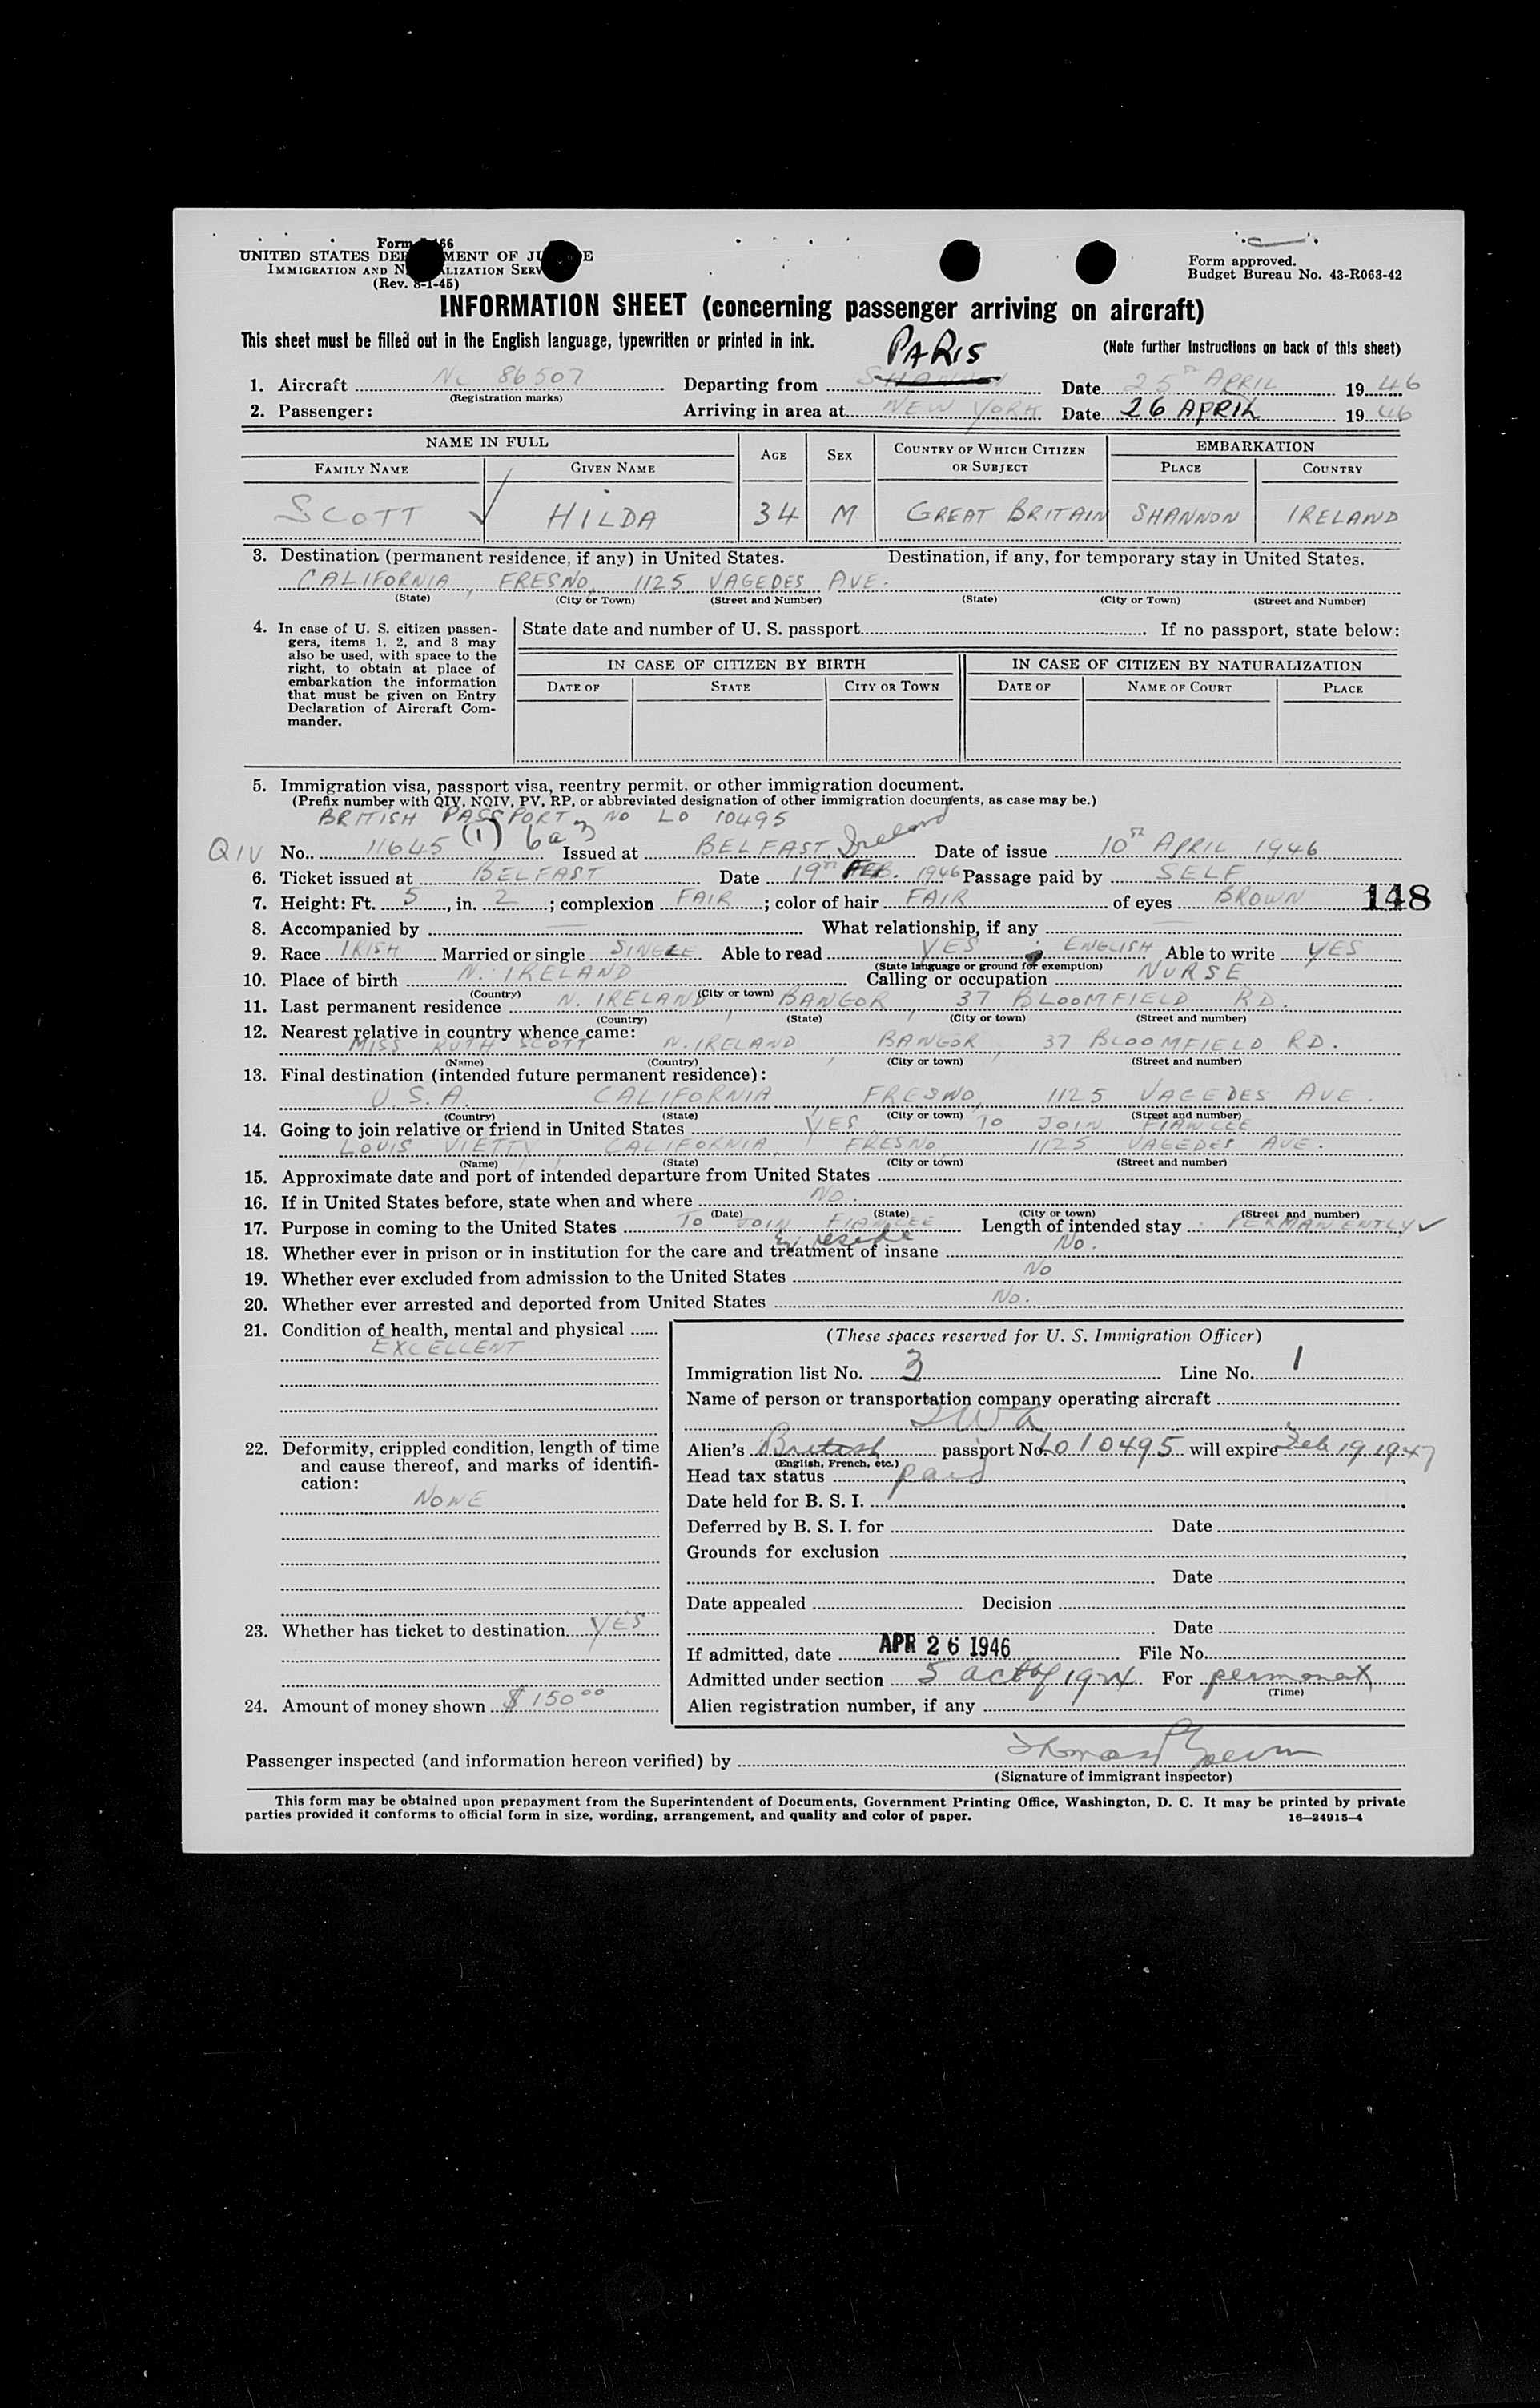 Form 66
UNITED STATES DEP MENT OF JU E
IMMIGRATION AND N LIZATION SERV
(Rev. 8-1-45)
Form approved.
Budget Bureau No. 43-R063-42
INFORMATION SHEET (concerning passenger arriving on aircraft)
This sheet must be filled out in the English language, typewritten or printed in ink.
(Note further instructions on back of this sheet)
PARIS
1. Aircraft NC 86507 Departing from SHANNON Date 25TH APRIL 1946
(Registration marks)
2. Passenger: Arriving in area at NEW YORK Date 26 APRIL 1946
NAME IN FULL AGE SEX COUNTRY OF WHICH CITIZEN OR SUBJECT EMBARKATION
FAMILY NAME GIVEN NAME PLACE COUNTRY
SCOTT ✓ HILDA 34 M GREAT BRITAIN SHANNON IRELAND
3. Destination (permanent residence, if any) in United States. Destination, if any, for temporary stay in United States.
CALIFORNIA, FRESNO, 1125 VAGEDES AVE.
(State) (City or Town) (Street and Number) (State) (City or Town) (Street and Number)
4. In case of U. S. citizen passen-
gers, items 1, 2, and 3 may
also be used, with space to the
right, to obtain at place of
embarkation the information
that must be given on Entry
Declaration of Aircraft Com-
mander.
State date and number of U. S. passport If no passport, state below:
IN CASE OF CITIZEN BY BIRTH IN CASE OF CITIZEN BY NATURALIZATION
DATE OF STATE CITY OR TOWN DATE OF NAME OF COURT PLACE
5. Immigration visa, passport visa, reentry permit, or other immigration document.
(Prefix number with QIV, NQIV, PV, RP, or abbreviated designation of other immigration documents, as case may be.)
BRITISH PASSPORT NO LO 10495
QIV No. 11645 (1) 6a3 Issued at BELFAST, Ireland Date of issue 10TH APRIL 1946
6. Ticket issued at BELFAST Date 19TH FEB. 1946 Passage paid by SELF
7. Height: Ft. 5, in. 2; complexion FAIR; color of hair FAIR of eyes BROWN 148
8. Accompanied by — What relationship, if any —
9. Race IRISH Married or single SINGLE Able to read YES ENGLISH Able to write YES
(State language or ground for exemption)
10. Place of birth N. IRELAND Calling or occupation NURSE
(Country) (City or town)
11. Last permanent residence N. IRELAND, BANGOR, 37 BLOOMFIELD RD.
(Country) (State) (City or town) (Street and number)
12. Nearest relative in country whence came:
MISS RUTH SCOTT N. IRELAND, BANGOR, 37 BLOOMFIELD RD.
(Name) (Country) (City or town) (Street and number)
13. Final destination (intended future permanent residence):
U.S.A. CALIFORNIA, FRESNO, 1125 VAGEDES AVE.
(Country) (State) (City or town) (Street and number)
14. Going to join relative or friend in United States YES, TO JOIN FIANCEE
LOUIS VIETTY, CALIFORNIA, FRESNO, 1125 VAGEDES AVE.
(Name) (State) (City or town) (Street and number)
15. Approximate date and port of intended departure from United States
16. If in United States before, state when and where NO.
(Date) (State) (City or town) (Street and number)
17. Purpose in coming to the United States TO JOIN FIANCEE Length of intended stay PERMANENTLY ✓
& reside
18. Whether ever in prison or in institution for the care and treatment of insane NO.
19. Whether ever excluded from admission to the United States NO
20. Whether ever arrested and deported from United States NO.
21. Condition of health, mental and physical
EXCELLENT
22. Deformity, crippled condition, length of time
and cause thereof, and marks of identifi-
cation:
NONE
23. Whether has ticket to destination YES
24. Amount of money shown $150.00
(These spaces reserved for U. S. Immigration Officer)
Immigration list No. 3 Line No. 1
Name of person or transportation company operating aircraft
TWA
Alien's British passport No. LO10495 will expire Feb 19 1947
(English, French, etc.)
Head tax status paid
Date held for B. S. I.
Deferred by B. S. I. for Date
Grounds for exclusion
Date
Date appealed Decision
Date
If admitted, date APR 26 1946 File No.
Admitted under section 5 act of 1924 For permanent
(Time)
Alien registration number, if any
Passenger inspected (and information hereon verified) by Thomas
(Signature of immigrant inspector)
This form may be obtained upon prepayment from the Superintendent of Documents, Government Printing Office, Washington, D. C. It may be printed by private
parties provided it conforms to official form in size, wording, arrangement, and quality and color of paper. 16—24915-4